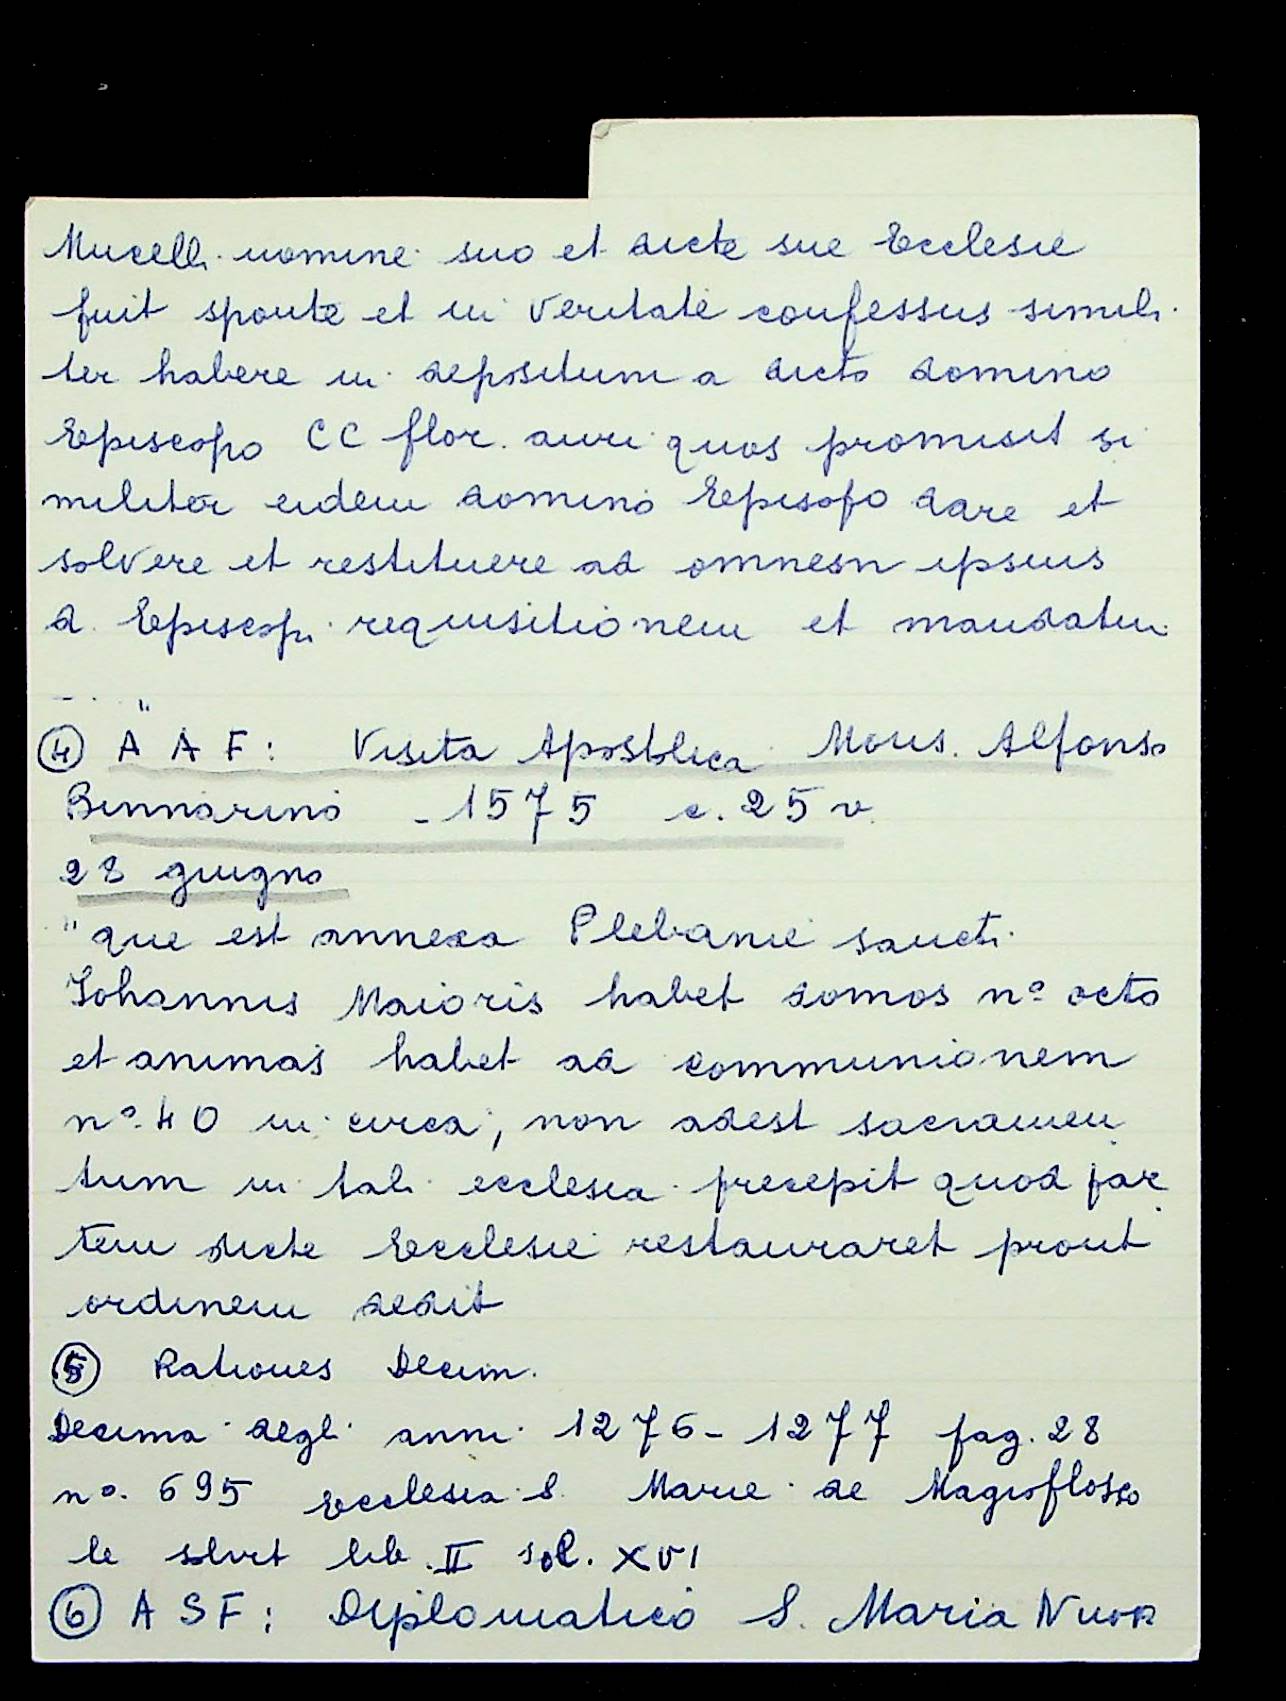 Mucelli nomine suo et dicte sue Ecclesie
fuit sponte et in veritate confessus simili
ter habere in depositum a dicto domino
Episcopo CC flor. auri quos promisit si
militer eidem domino Episofo dare et
solvere et restituere ad omnesn ipsius
d. Episcopi requisitionem et mandatum
- . . "
④ A A F: Visita Apostolica Mons. Alfonso
Binnarino - 1575 c. 25 v.
28 giugno
"que est annexa Plebanie sancti
Johannis Maioris habet domos nº octo
et animas habet ad communionem
nº. 40 in circa, non adest sacramen
tum in tali ecclesia precepit quod par
tem dicte Ecclesie restauraret prout
ordinem dedit
⑤ Rationes Decim.
Decima degli anni 1276 - 1277 pag. 28
nº. 695 Ecclesia S. Marie de
le solvit lib. II sol. XVI
⑥ A S F: Diplomatico S. Maria Nuova